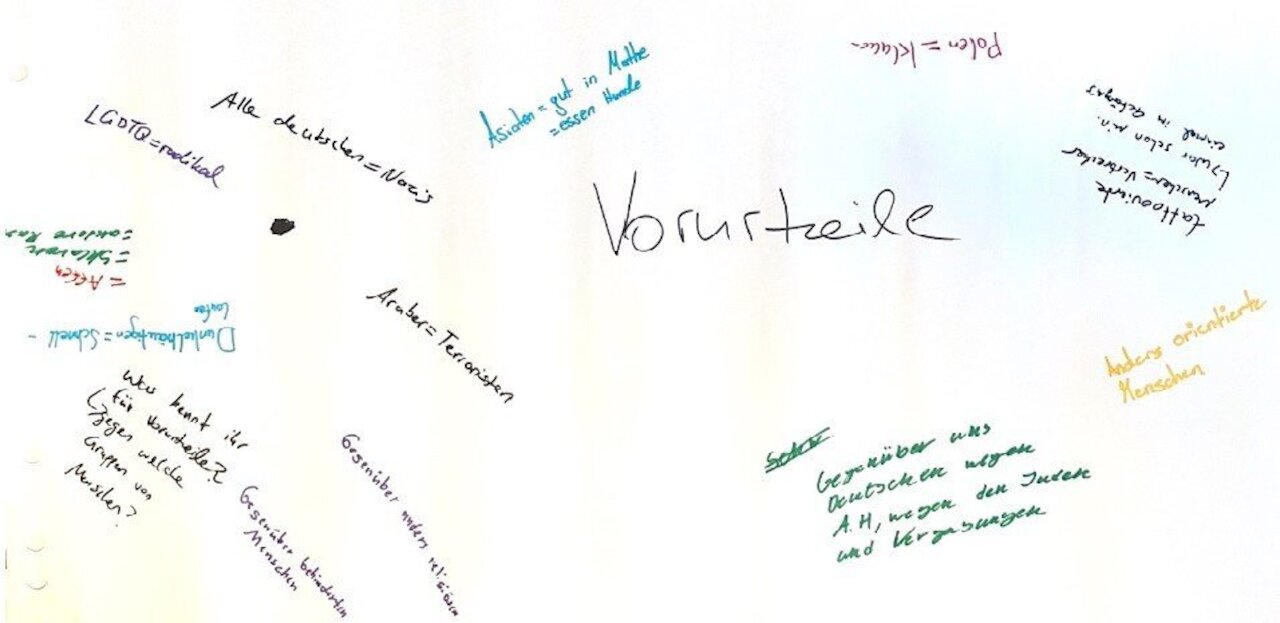 Vorurteile
Alle deutschen = Nazis
LGBTQ = radikal
Asiaten = gut in Mathe
= essen Hunde
Polen = klauen
tattoovierte
menschen = Verbrecher
↳ war schon min.
einmal in Gefängnis
Anders orientierte
Menschen
Gegenüber uns
Deutschen wegen
A.H, wegen den Juden
und Vergasungen
Araber = Terroristen
Gegenüber anders religiösen
Gegenüber behinderten
Menschen
Was kennt ihr
für Vorurteile?
↳ gegen welche
Gruppen von
Menschen?
Dunkelhäutigen = Schnell -
laufen
= Affen
= Sklaven
= andere